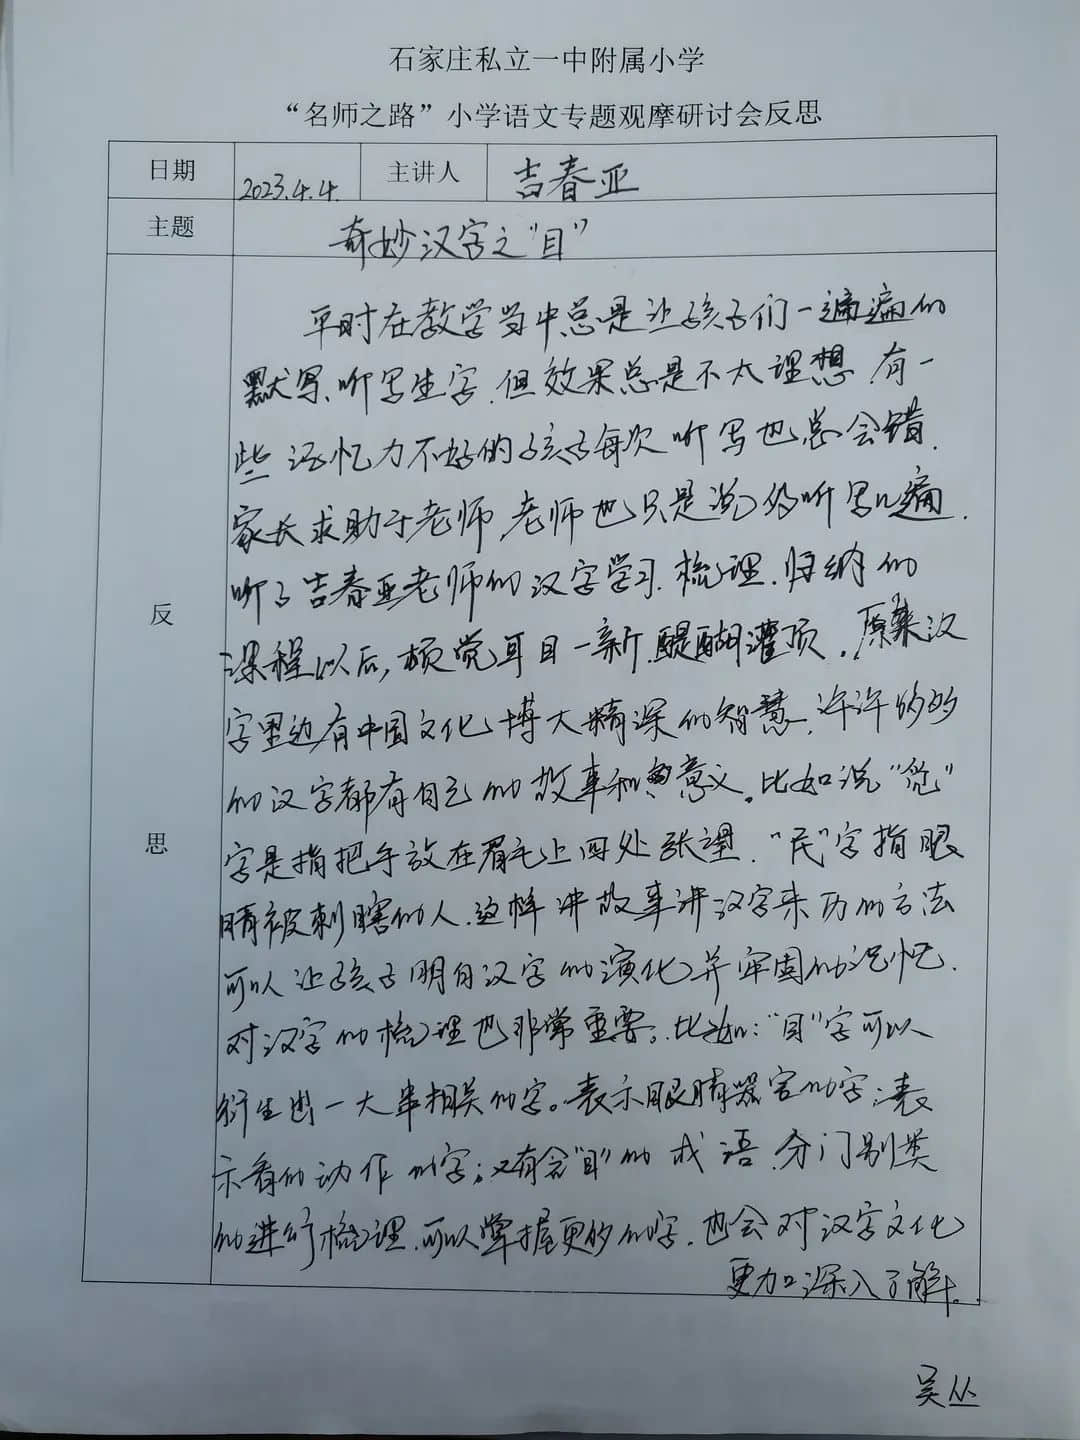 石家庄私立一中附属小学
“名师之路”小学语文专题观摩研讨会反思
日期 2023.4.4. 主讲人 吉春亚
主题 奇妙汉字之“目”
反思
平时在教学当中总是让孩子们一遍遍的
默写、听写生字.但效果总是不太理想.有一
些记忆力不好的孩子每次听写也总会错.
家长求助于老师,老师也只是说多听写几遍.
听了吉春亚老师的汉字学习.梳理.归纳的
课程以后,顿觉耳目一新.醍醐灌顶.原来汉
字里边有中国文化博大精深的智慧.许许多多的
的汉字都有自己的故事和意义。比如说“覓”
字是指把手放在眉毛上四处张望.“民”字指眼
睛被刺瞎的人.这样讲故事讲汉字来历的方法
可以让孩子明白汉字的演化并牢固的记忆.
对汉字的梳理也非常重要。比如:“目”字可以
衍生出一大串相关的字。表示眼睛器官的字;表
示看的动作的字;又有含“目”的成语.分门别类
的进行梳理.可以掌握更多的字.也会对汉字文化
更加深入了解.
吴丛